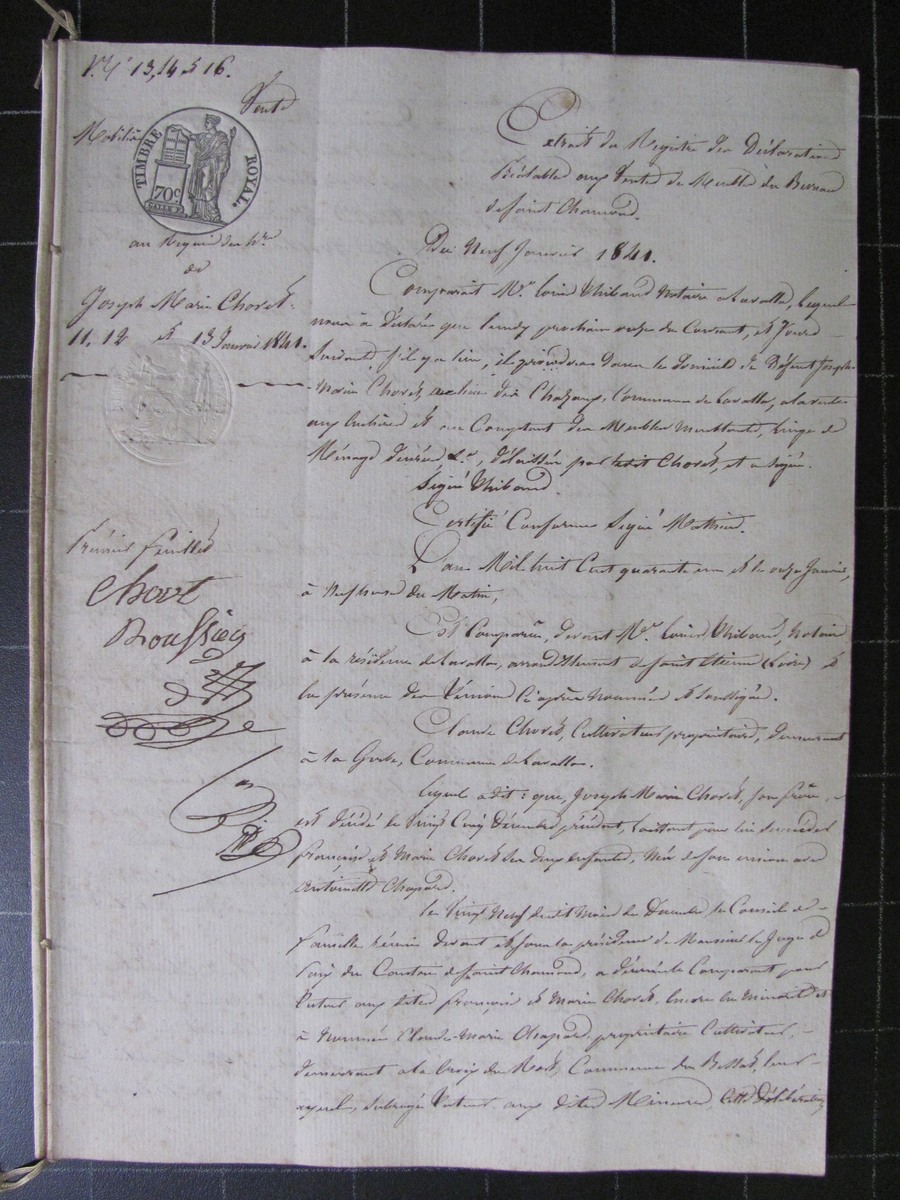 13, 14 & 16.
Vente
Mobilière
TIMBRE ROYAL.
70 c
au Requis des hrs
de
Joseph Marie Chorel.
11. 12 & 13 Janvier 1841.
Premier feuillet
Chorel
Roussier
Extrait du Registre des Déclarations
Préalables aux Ventes de Meubles du Bureau
de Saint Chamond.
Du Neuf Janvier 1841.
Comparait Me. Louis Thibaud Notaire à Lavalla, lequel
nous a déclaré que lundi prochain onze du Courant, et Jours
Suivants, s'il y a lieu, il procédera dans le domicile de Défunt Joseph
Marie Chorel, au lieu des Chazaux, Commune de Lavalla, à la vente
aux Enchères et au Comptant des Meubles Meublants, Linge de
Ménage denrées &a, délaissés par ledit Chorel, et a signé.
Signé Thibaud
Certifié Conforme Signé Mathieu.
L'an Mil huit Cent quarante un et le onze Janvier,
à Neuf heures du Matin,
Est Comparu, devant Me. Louis Thibaud, Notaire
à la résidence de Lavalla, arrondissement de Saint Etienne (Loire) &
en présence des Témoins Ci après nommés & soussignés.
Claude Chorel, Cultivateur propriétaire, demeurant
à la Commune de Lavalla.
Lequel a dit : que, Joseph Marie Chorel, son frère,
est décédé le Vingt Cinq Décembre précédent, laissant pour lui Succéder
françoise et Marie Chorel ses deux enfants, Nés de son union avec
Antoinette Chapard.
Le Vingt Neuf dudit Mois de Décembre le Conseil de
famille réuni devant et sous la présidence de Monsieur le Juge de
Paix du Canton de Saint Chamond, a déféré le Comparant pour
tuteur aux dites françoise et Marie Chorel, Encore en Minorité et
à Nommé Claude-Marie Chapard, propriétaire Cultivateur,
demeurant à la Croix du Commune du Bessat, leur
subrogé Tuteur aux dites Mineures, Cette Délibération